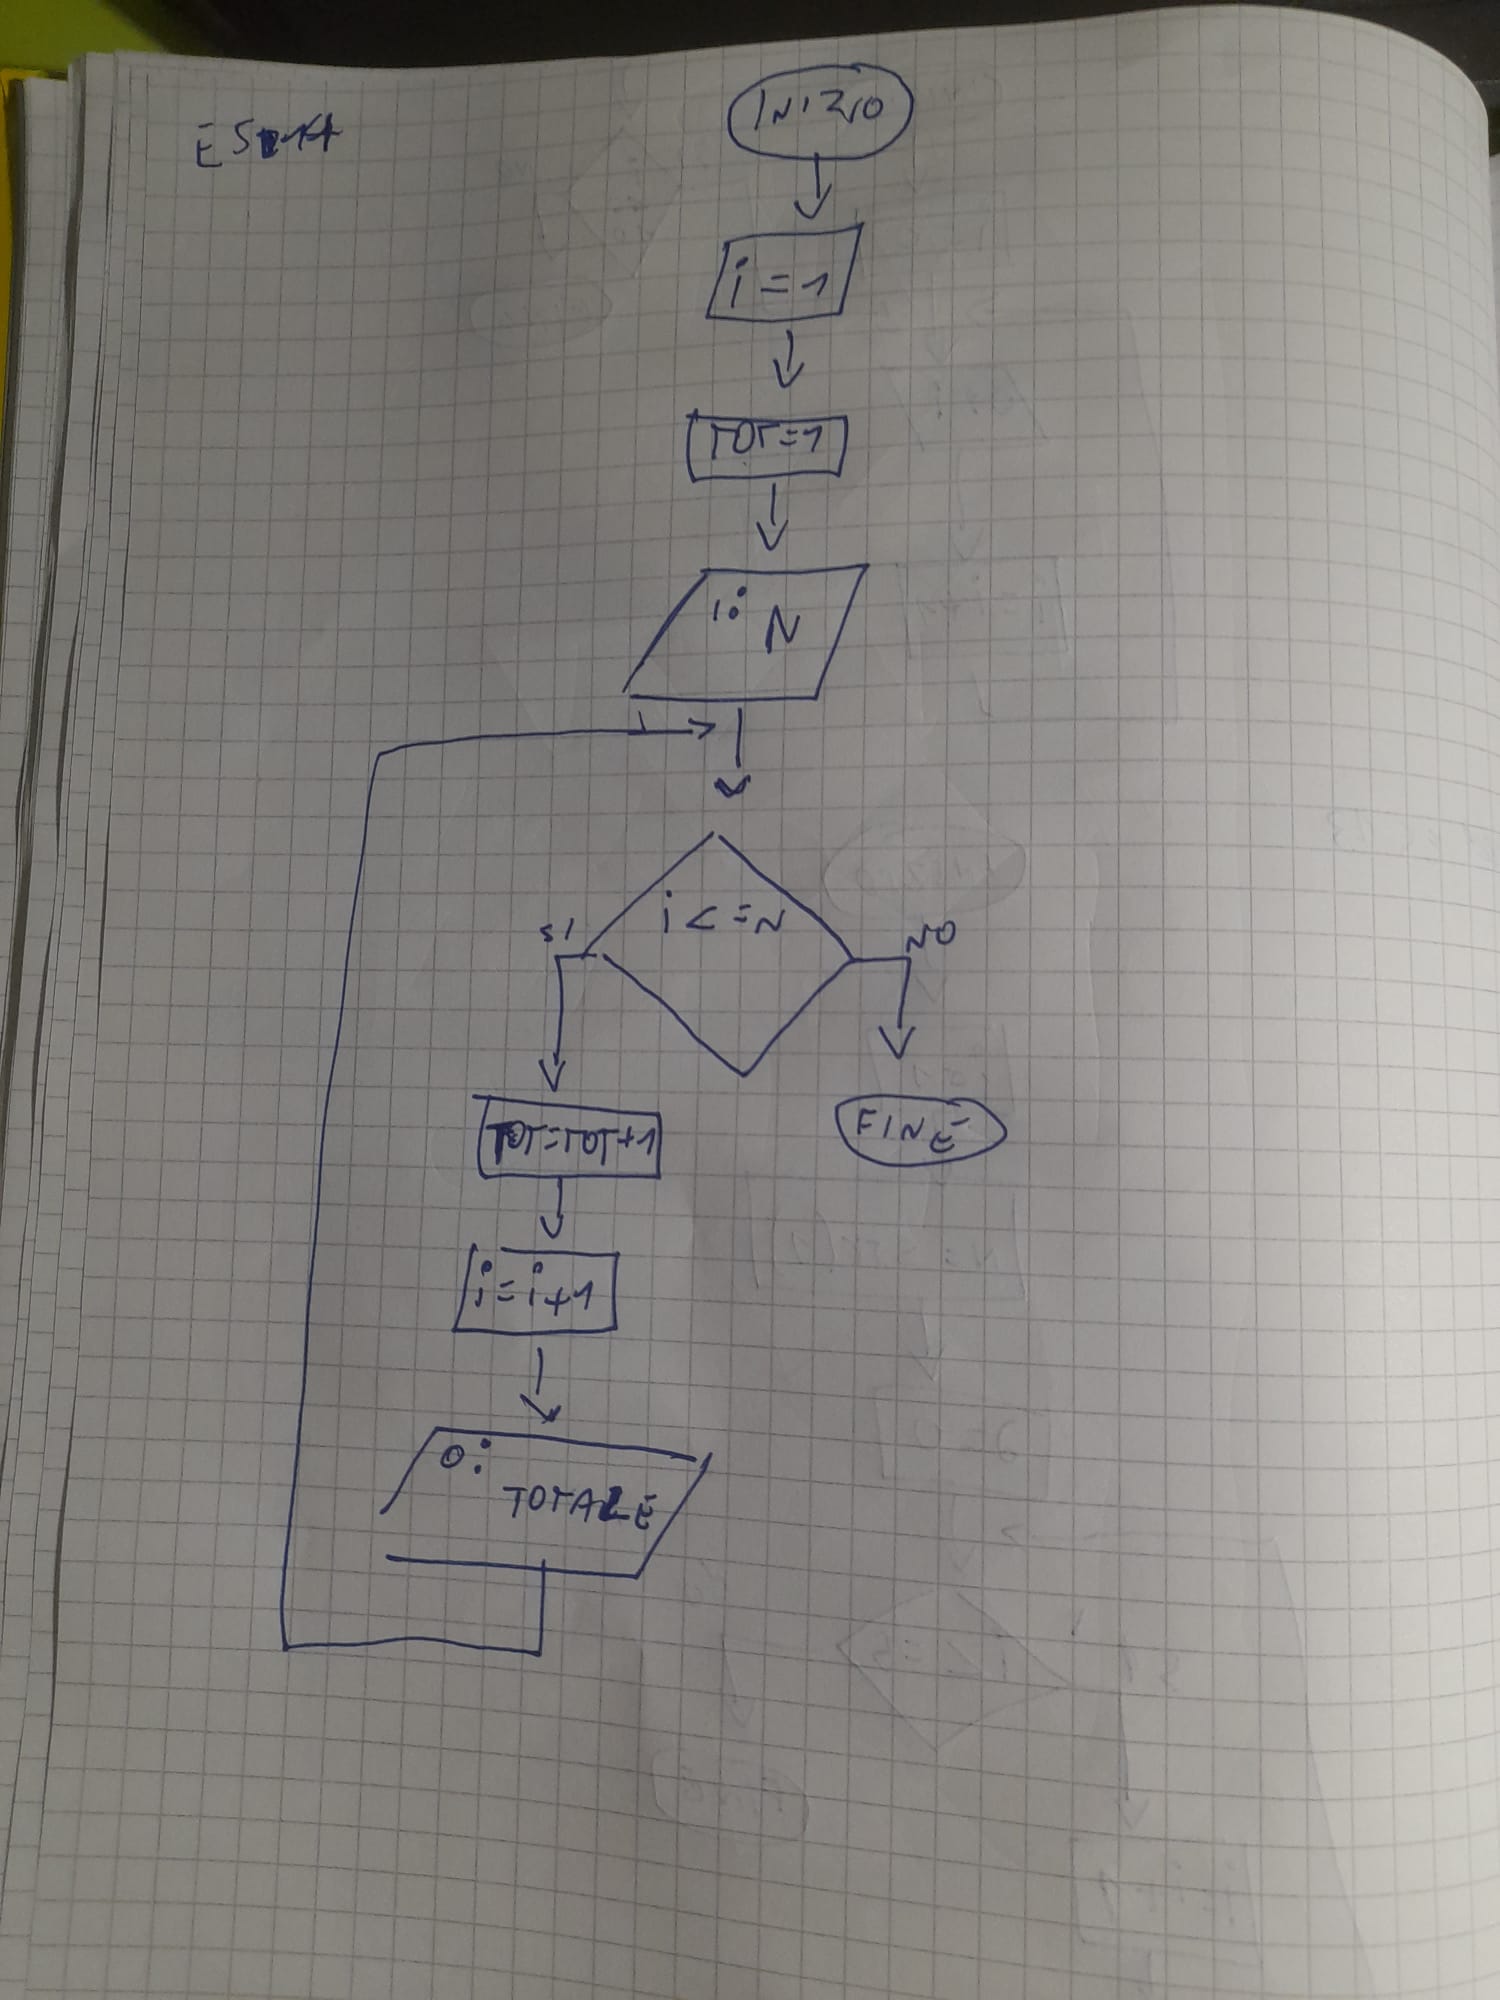 INIZIO
i=1
TOT=1
I: N
i<=N
SI
NO
TOT=TOT+1
FINE
i=i+1
O:
TOTALE